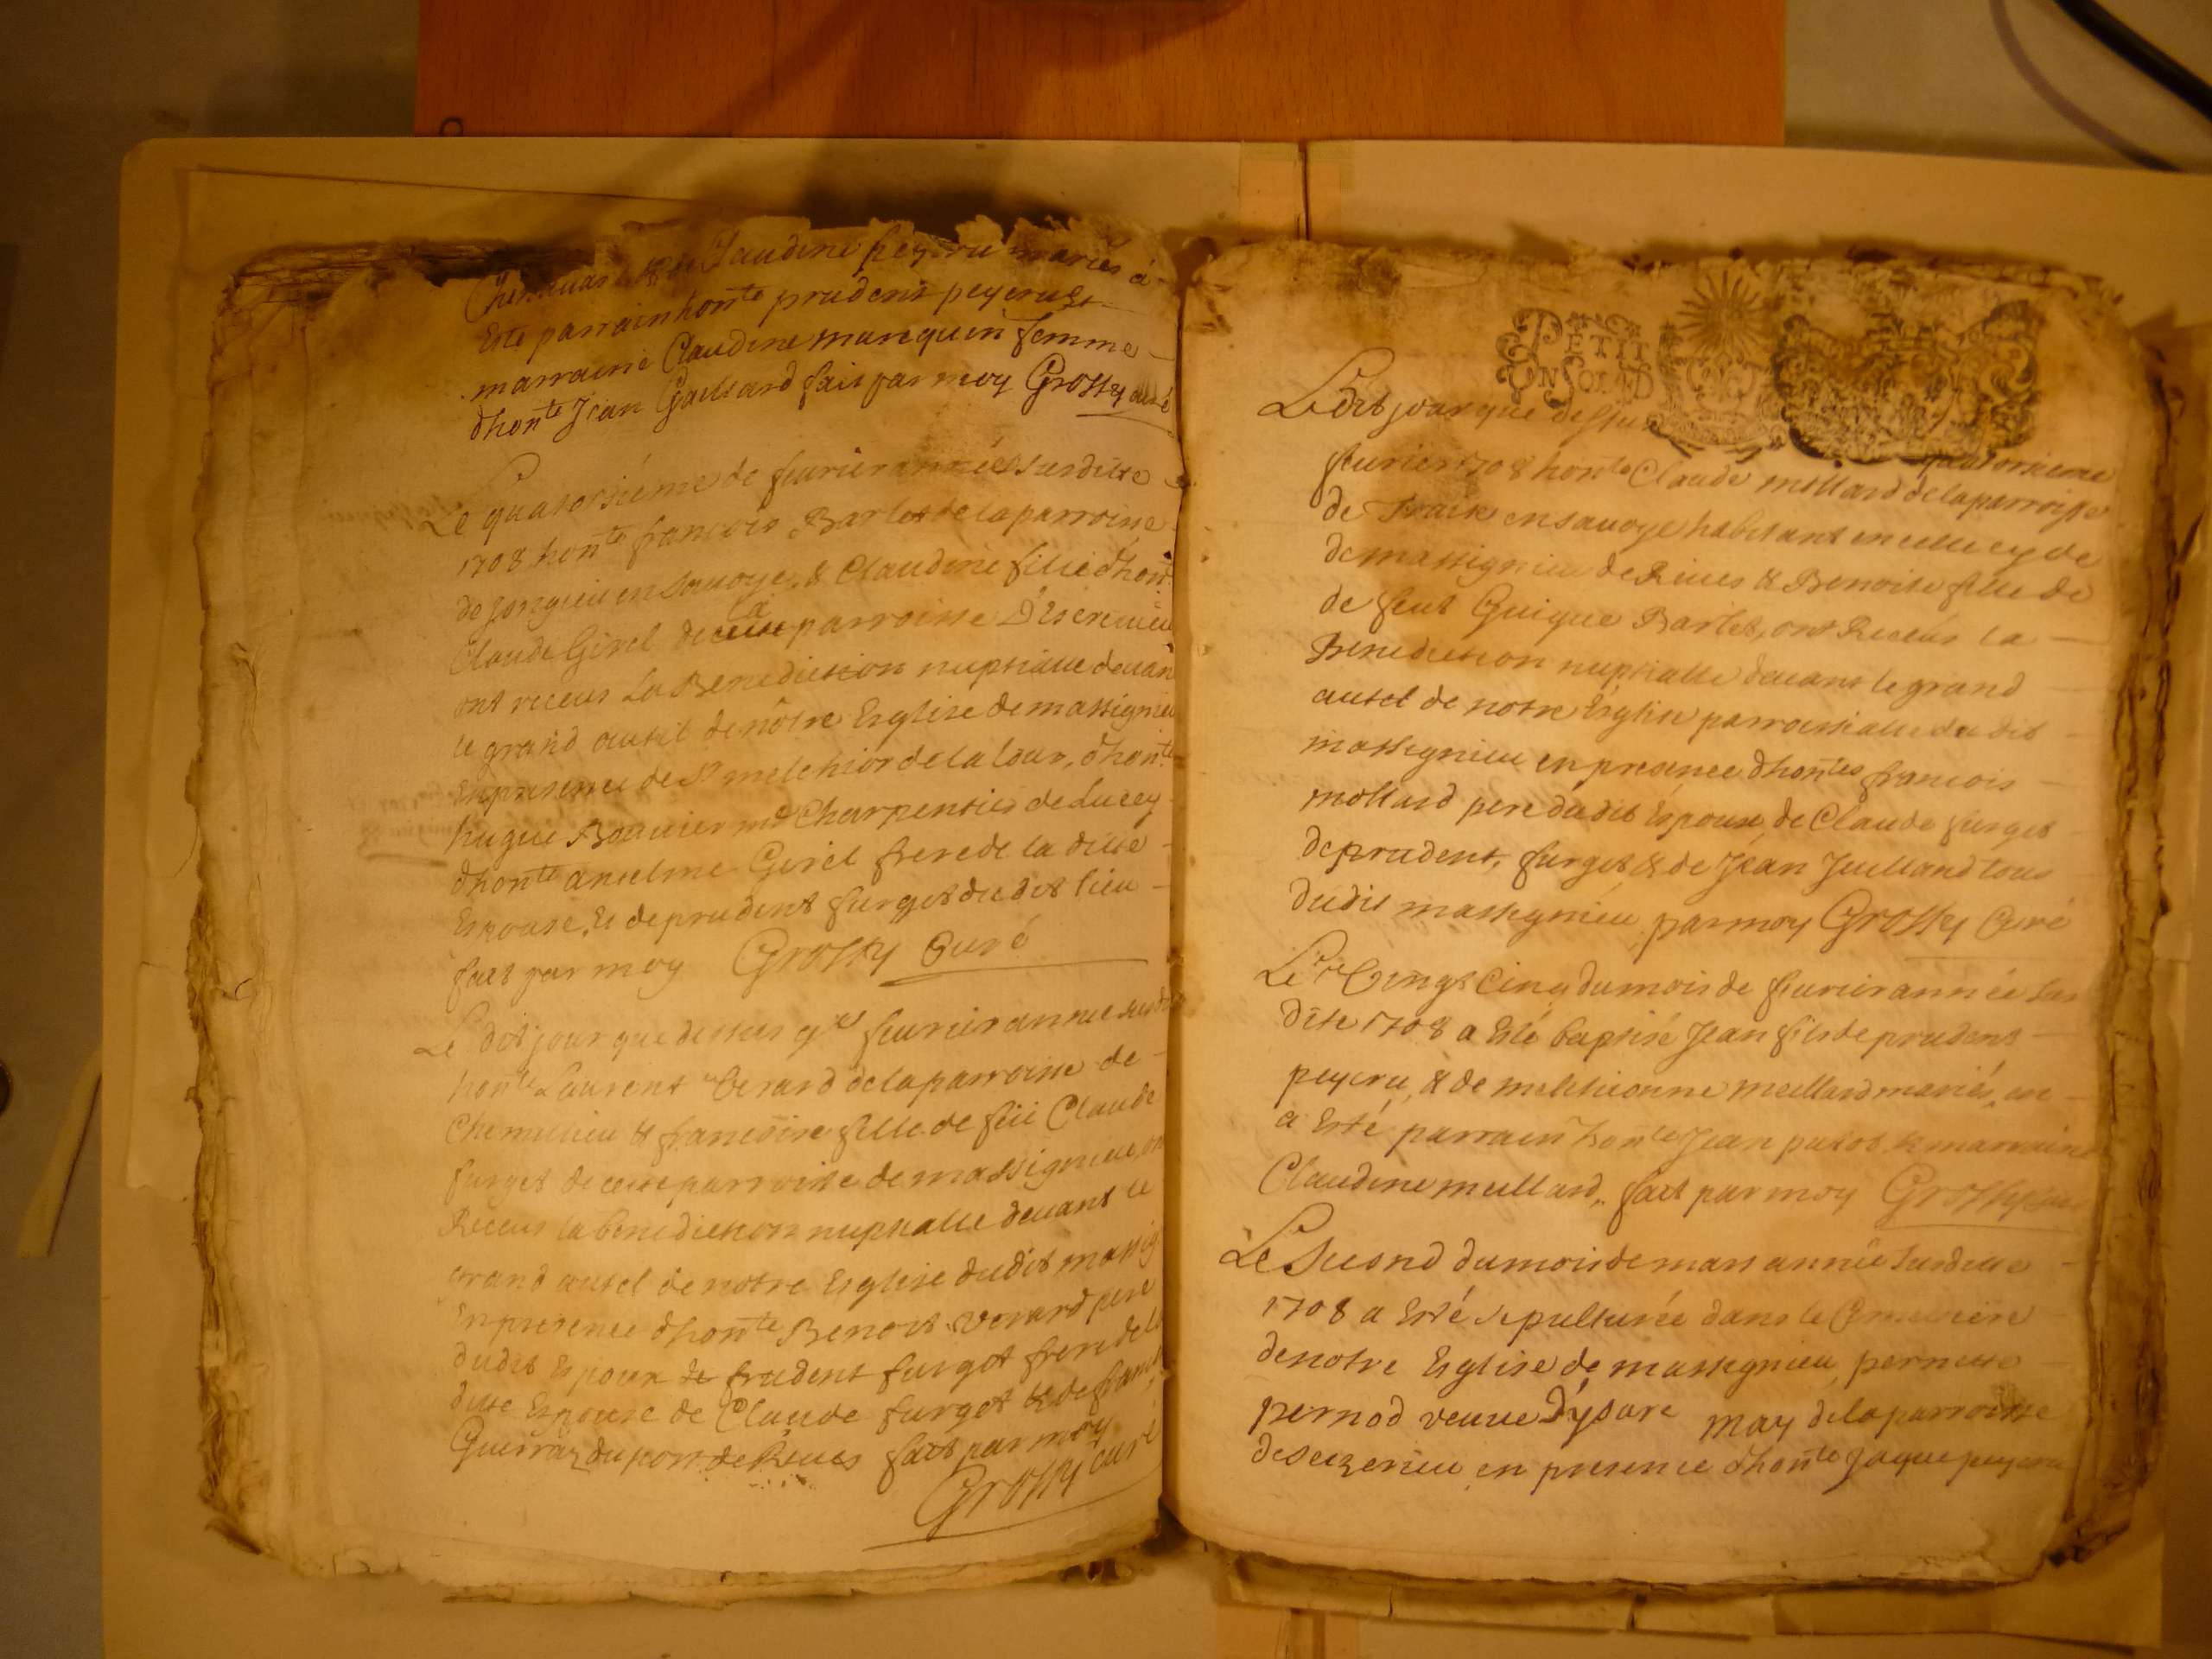 Claudine peycru mariés a
Este parrain hon.te prudent peyeru &
marraine Claudine manquin femme
d'hon.te Jean Gaillard fait par moy Grossy curé
Le quatorsiéme de feurier année susditte
1708 hon.te francois Barlet de la parroisse
de Jongieu en Sauoye, & Claudine fille d'hon.te
Claude Girel de la parroisse D'Escrivieu
ont receus La Benediction nuptialle deuant
le grand autel de nôtre Esglise de massignieu
En presence de Sr melchior de la tour, d'hon.te
hugue Bouuier md Charpentier de Lucey
d'hon.te anselme Girel frere de la ditte
Espouse, Et de prudent furget dudit lieu
fait par moy Grossy Curé
Le dit jour que dessus feurier année susd
hon.te Laurent berard de la parroisse de
Chemilieu & francoise fille de feü Claude
furget de cette parroisse de massignieu, on
Receus la benediction nuptialle deuant le
grand autel de notre Esglise dudit massig
En presence d'hon.te Benoit verard pere
dudit Espoux de prudent furget frere de la
ditte Espouse de Claude furget & de franc
Guerraz du pont de Riues fait par moy
Grossy curé
PETIT
UN SOL LD
Ledit jour que dessus quatorsieme
feurier 1708 hon.te Claude mollard de la parroisse
de Traize en sauoye habitant en celle cy de
de massignieu de Riues & Benoite fille de
de feut Guigue Barlet, ont Receus la
Benediction nuptialle deuant le grand
autel de notre Esglise parroissialle du dit
massignieu en presence d'hon.tes francois
mollard pere dudit Espoux, de Claude furget
de prudent, furget & de Jean Juilland tous
dudit massignieu par moy Grossy Curé
Le vingt Cinq du mois de feurier année sus
dite 1708 a Eté baptisé Jean fils de prudent
peyeru, & de melchionne meillard mariés, en
a Esté parrain hon.te Jean putod & marraine
Claudine meillard, fait par moy Grossy
Le Second du mois de mars année susditte
1708 a Esté sepulturée dans le Cimetiere
de notre Esglise de massignieu, pernette
pernod veuue D'ysare may de la parroisse
de seizerieu en presence d'hon.te Jaque peyeru